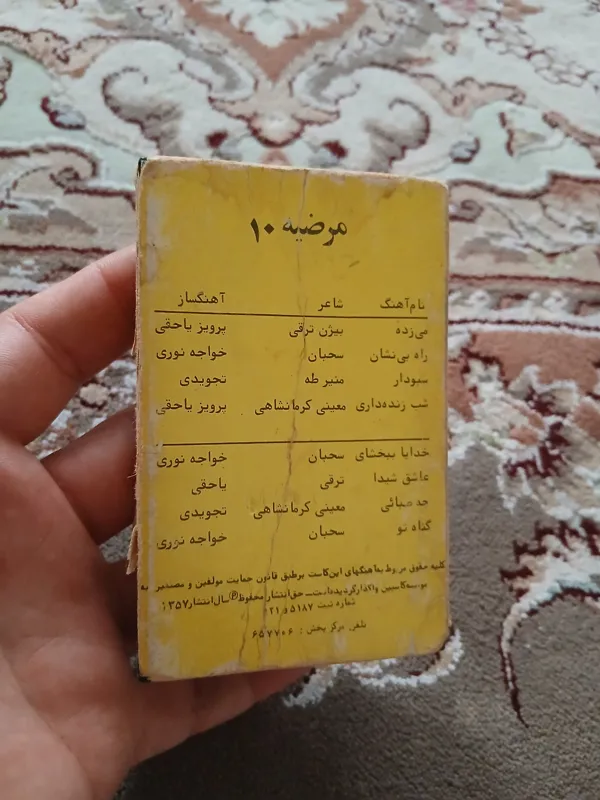 مرضیه ۱۰
نام‌آهنگ شاعر آهنگساز
می‌زده بیژن ترقی پرویز یاحقی
راه بی‌نشان سحبان خواجه نوری
سبودار منیر طه تجویدی
شب زنده‌داری معینی کرمانشاهی پرویز یاحقی
خدایا ببخشای سحبان خواجه نوری
عاشق شیدا ترقی یاحقی
معینی کرمانشاهی تجویدی
گناه تو سحبان خواجه نوری
کلیه حقوق مربوط به‌آهنگهای این‌کاست برطبق قانون حمایت مولفین و مصنفین به
واگذارگردیده‌است ـ حق‌انتشار محفوظ Ⓟ سال انتشار ۱۳۵۷
شماره ثبت ۵۱۸۷ و ۲۱
تلفن مرکز پخش : ۶۵۷۷۰۶